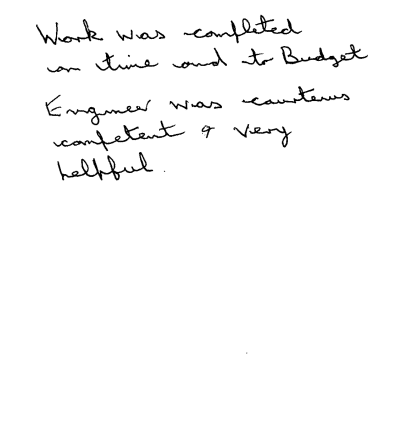 Work was completed
on time and to Budget
Engineer was courteous
competent & very
helpful.